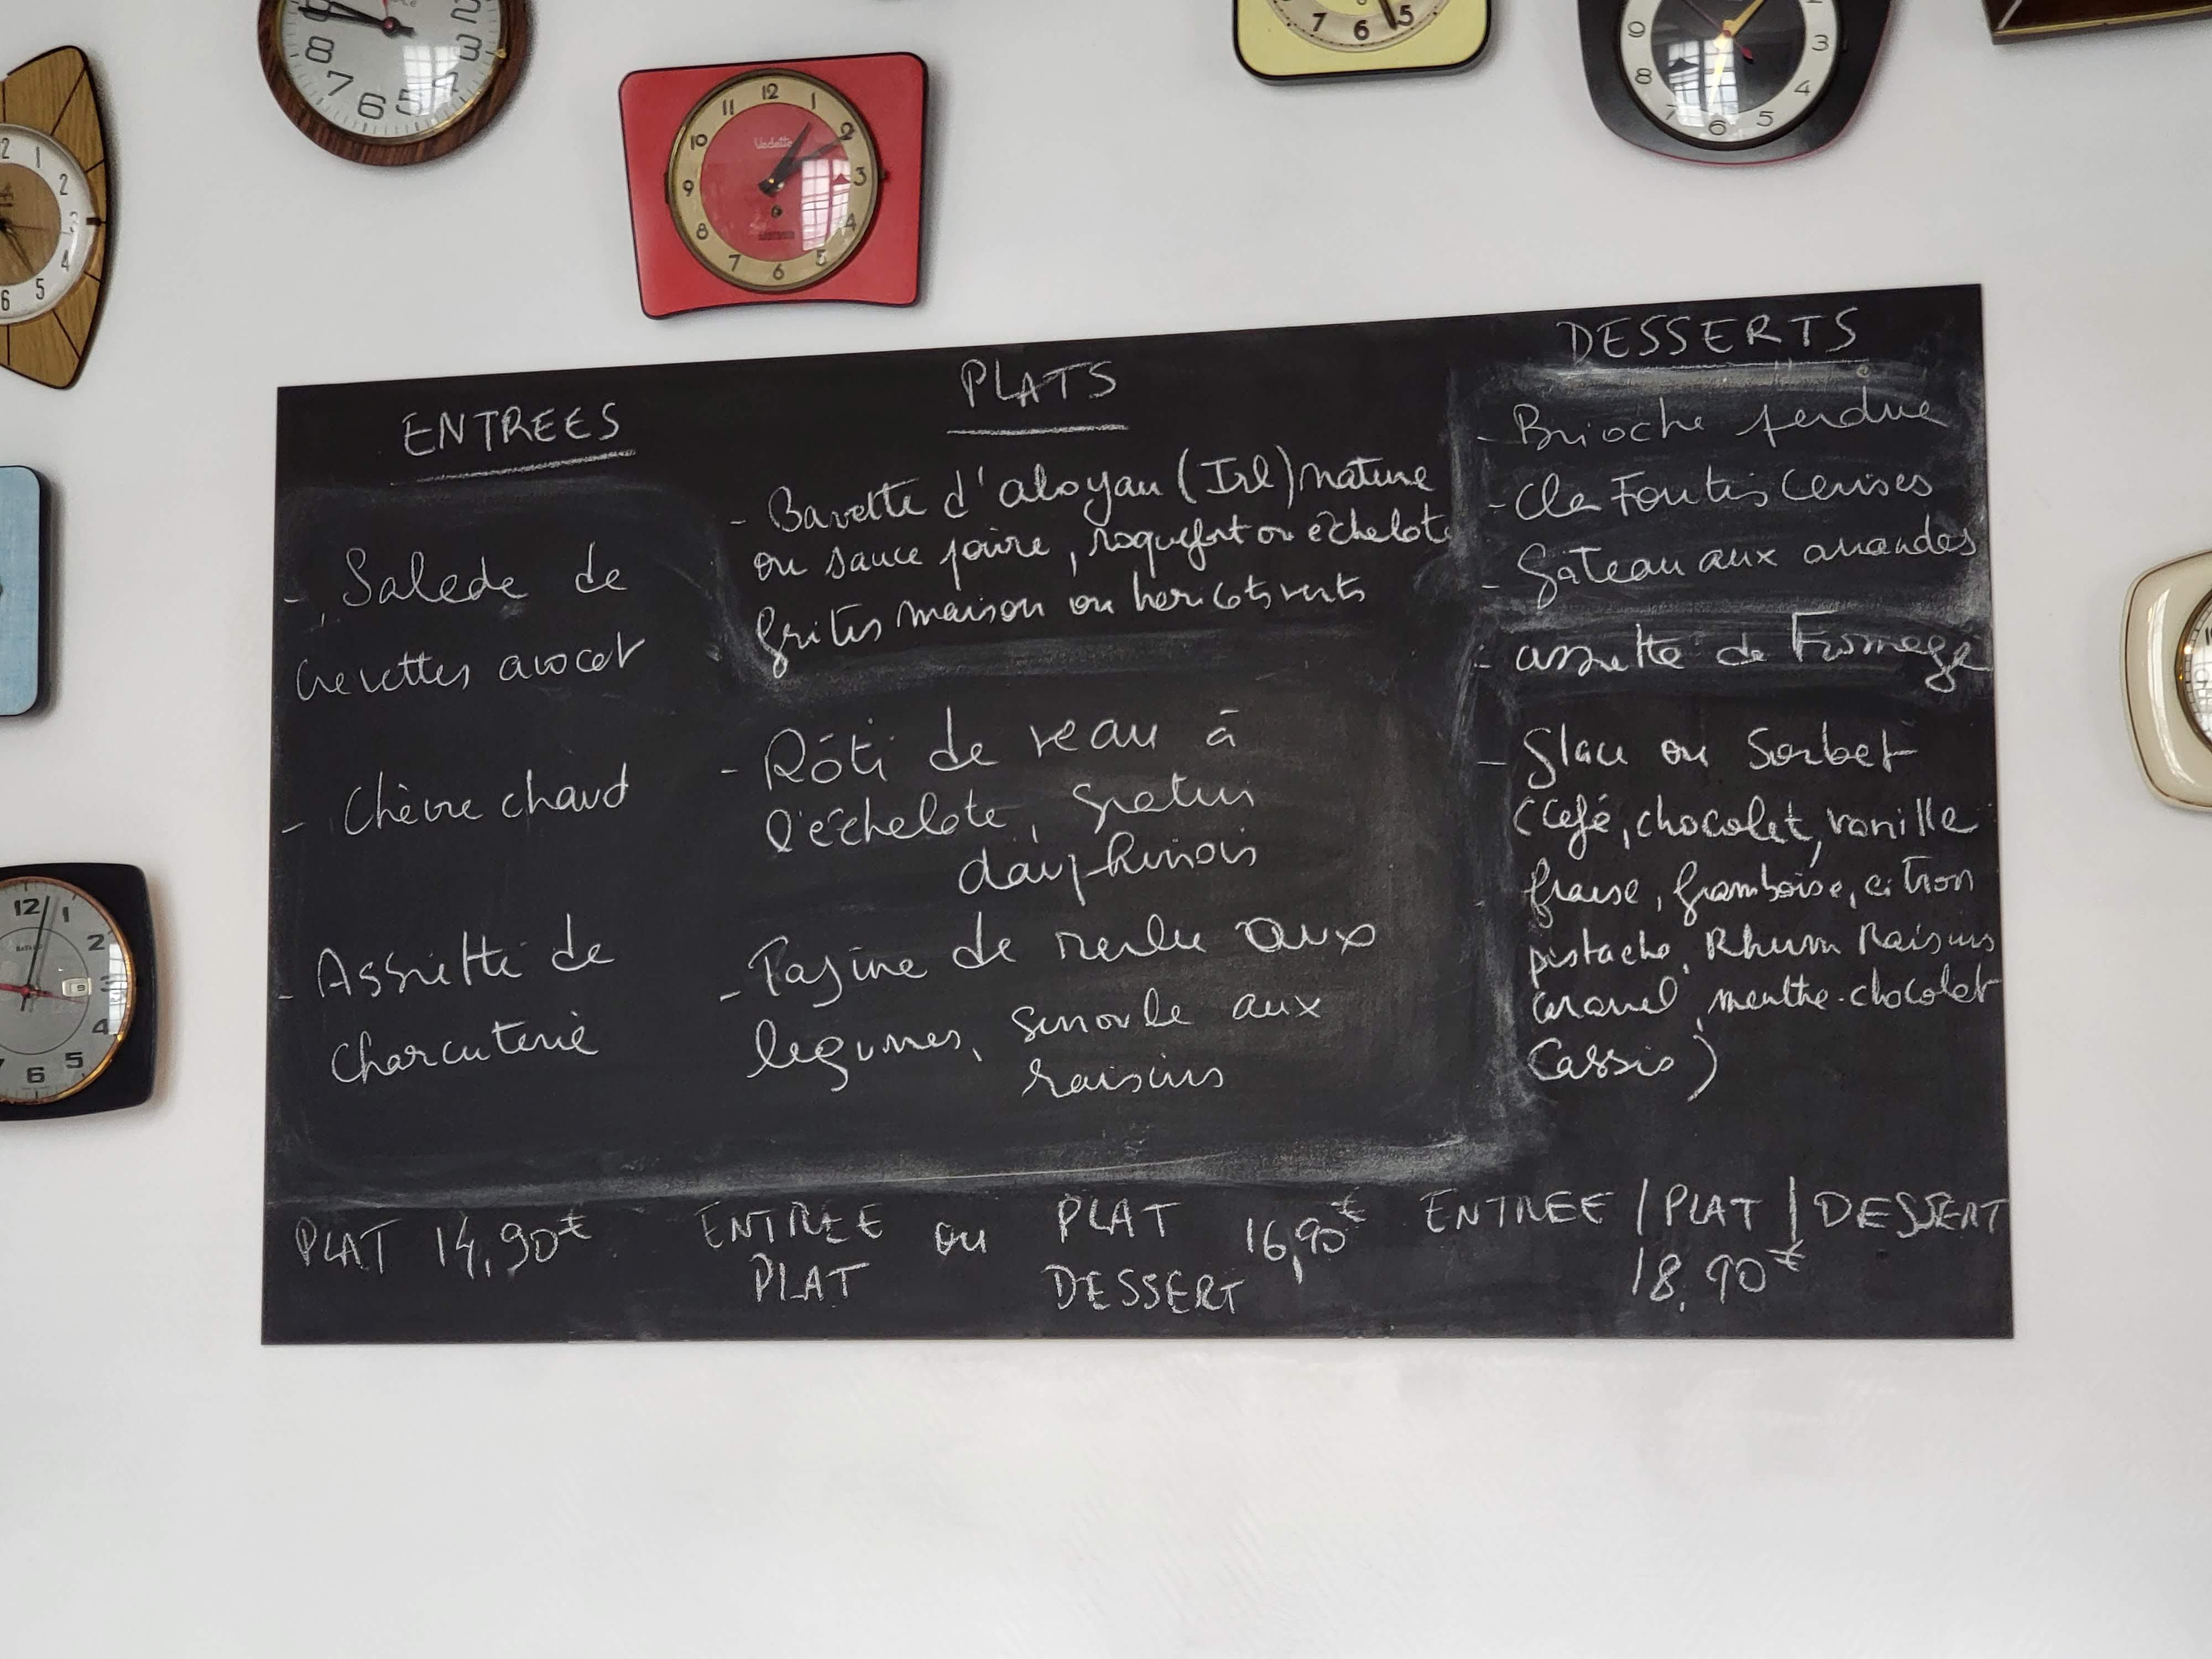 ENTREES
- Salade de
crevettes avocat
- Chèvre chaud
- Assiette de
charcuterie
PLATS
- Bavette d'aloyau (Irl) nature
ou sauce poivre, roquefort ou échalote
frites maison ou haricots verts
- Rôti de veau à
l'échalote, gratin
dauphinois
- Tagine de merlu aux
legumes, semoule aux
raisins
DESSERTS
- Brioche perdue
- ClaFoutis cerises
- Gâteau aux amandes
- assiette de Fromage
- Glace ou Sorbet
(café, chocolat, vanille
fraise, framboise, citron
pistache, Rhum Raisins
caramel, menthe-chocolat
Cassis)
PLAT 14,90€
ENTREE ou PLAT 16,90€
PLAT DESSERT
ENTREE | PLAT | DESSERT
18,90€
Vedette
12 1 2 3 4 5 6 7 8 9 10 11
8 7 6 5 3 2
7 6 5
9 8 7 6 5 4 3
1 2 3 4 5 6
12 1 2 3 4 5 6
9